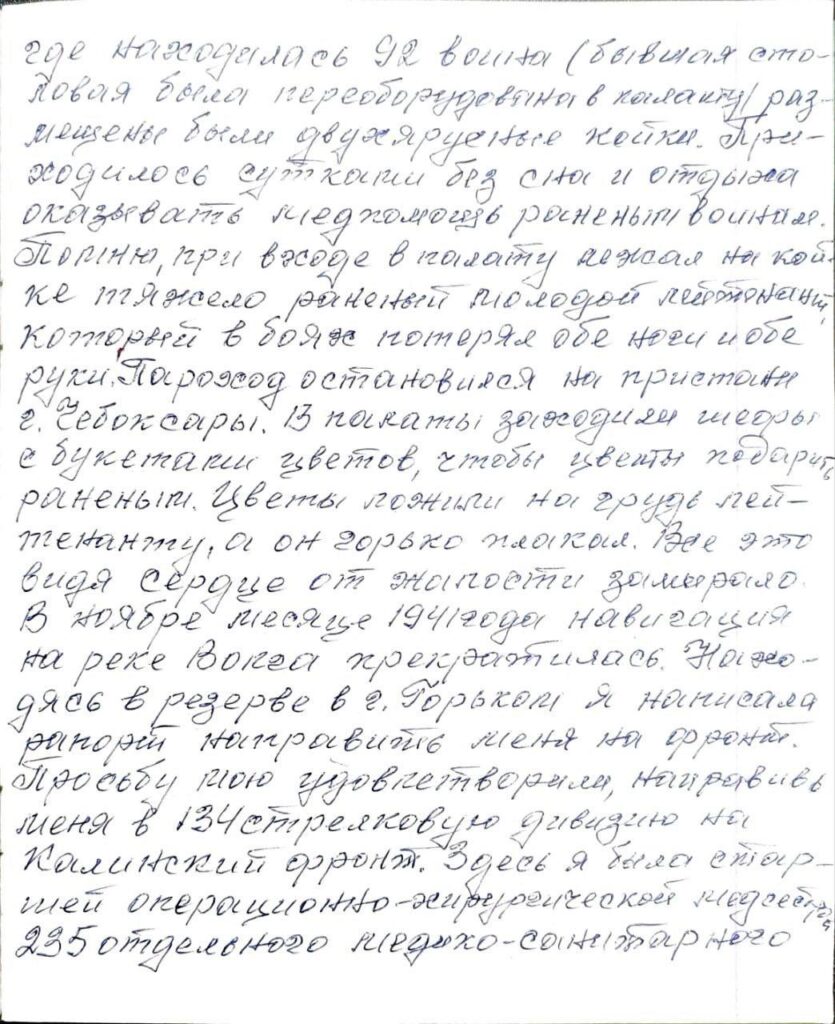 где находилась 92 воина (бывшая сто-
ловая была переоборудована в палату) раз-
мещены были двухярусные койки. При-
ходилось сутками без сна и отдыха
оказывать медпомощь раненым воинам.
Помню, при входе в палату лежал на кой-
ке тяжело раненый молодой лейтенант,
который в боях потерял обе ноги и обе
руки. Пароход остановился на пристани
г. Чебоксары. В палаты заходили шефы
с букетами цветов, чтобы цветы подарить
раненым. Цветы ложили на грудь лей-
тенанту, а он горько плакал. Все это
видя сердце от жалости замирало.
В ноябре месяце 1941 года навигация
на реке Волга прекратилась. Нахо-
дясь в резерве в г. Горьком я написала
рапорт направить меня на фронт.
Просьбу мою удовлетворили, направивь
меня в 134 стрелковую дивизию на
Калинский фронт. Здесь я была стар-
шей операционно-хирургической медсестрой
235 отдельного медико-санитарного